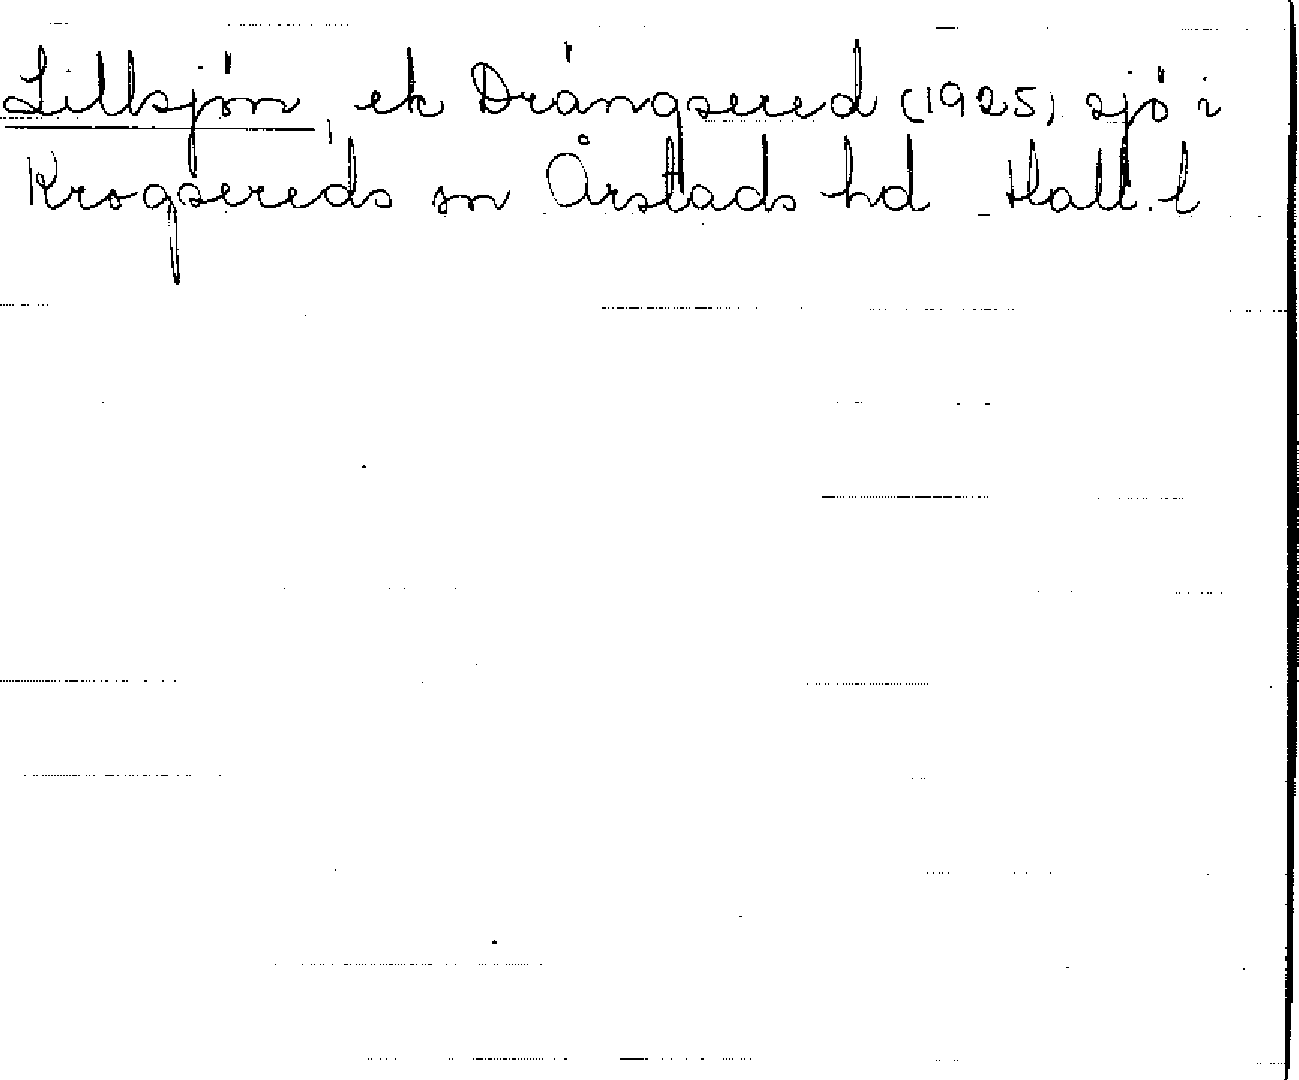 Lillsjön, ek Drängsered (1925) sjö i
Krogsereds sn Årstads hd Hall. l